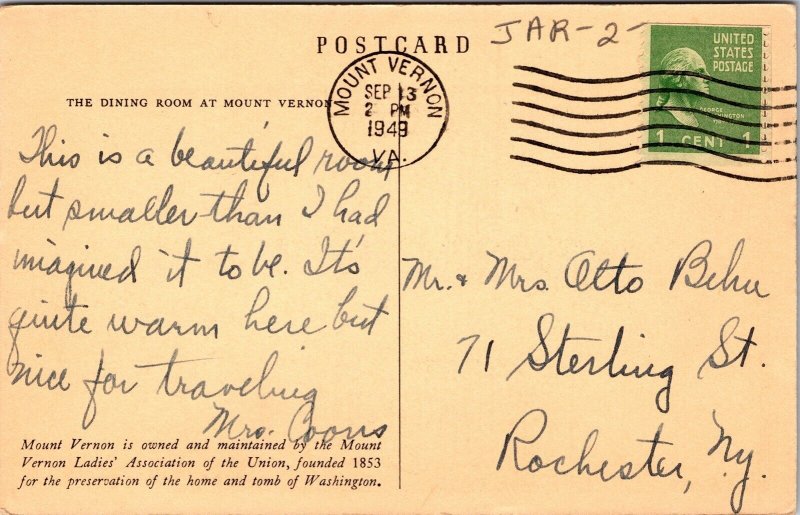 POSTCARD
JAR-2-
UNITED
STATES
POSTAGE
GEORGE
1 CENT 1
MOUNT VERNON
SEP 13
2 PM
1949
VA.
THE DINING ROOM AT MOUNT VERNON
This is a beautiful room
but smaller than I had
imagined it to be. It's
quite warm here but
nice for traveling
Mrs. Coons
Mount Vernon is owned and maintained by the Mount
Vernon Ladies' Association of the Union, founded 1853
for the preservation of the home and tomb of Washington.
Mr. & Mrs. Otto
71 Sterling St.
Rochester, Ny.